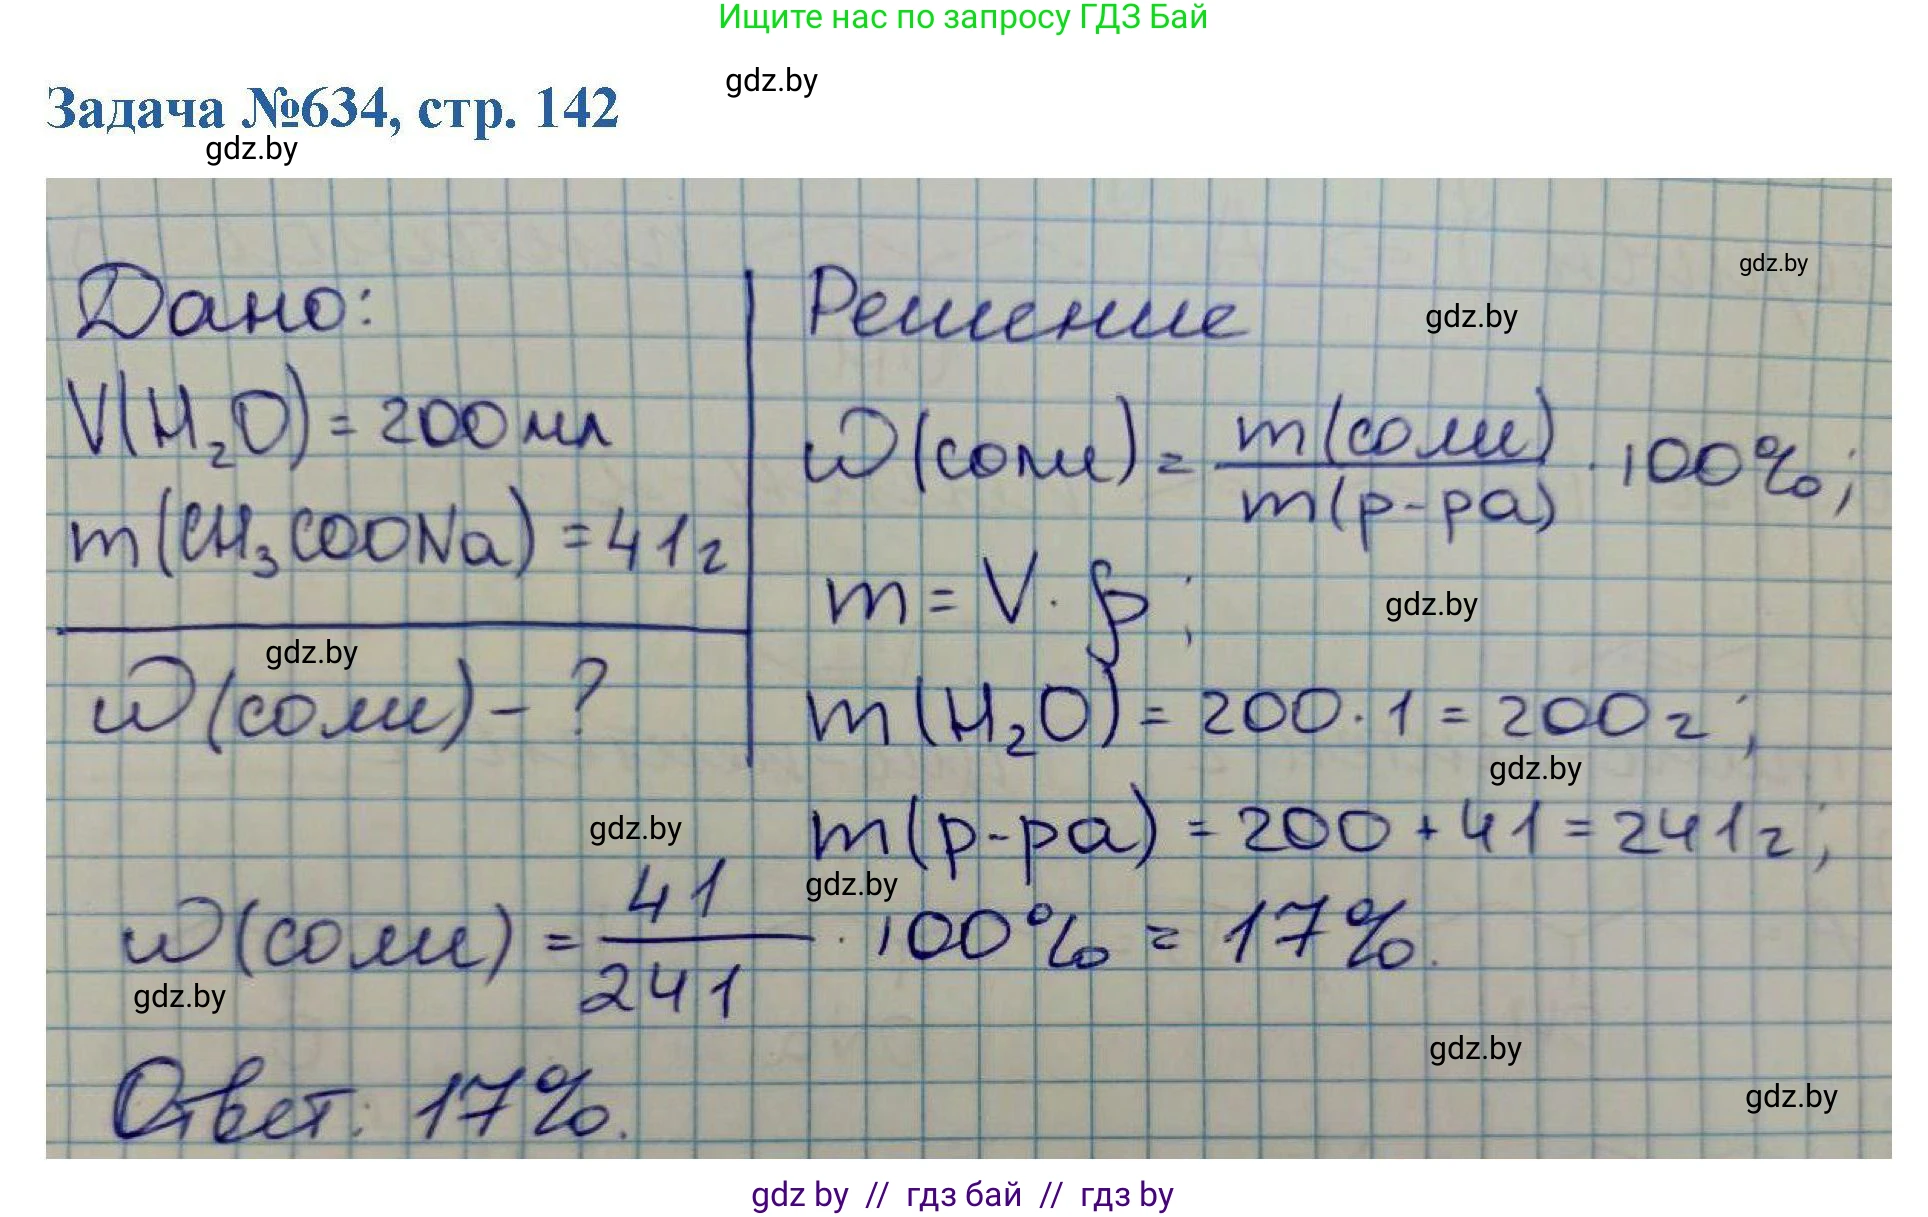 Ищите нас по запросу ГДЗ Бай
gdz.by
Задача №634, стр. 142
gdz.by
gdz.by
Дано:
V(H₂O) = 200 мл
m(CH₃COONa) = 41 г
gdz.by
ω(соли) - ?
Решение
gdz.by
ω(соли) = m(соли) / m(р-ра) · 100%;
m = V · ρ;
gdz.by
m(H₂O) = 200 · 1 = 200 г;
gdz.by
gdz.by
m(р-ра) = 200 + 41 = 241 г;
gdz.by
ω(соли) = 41 / 241 · 100% = 17%.
gdz.by
gdz.by
gdz.by
Ответ: 17%.
gdz by // гдз бай // гдз by